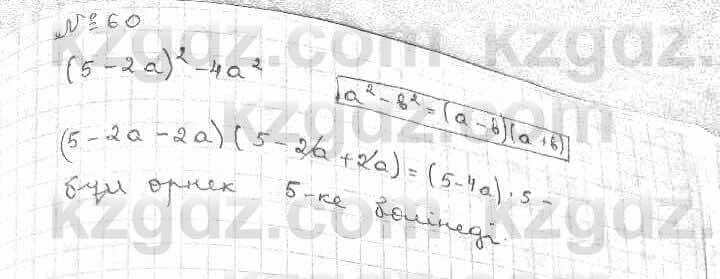 № 60
(5 - 2a)² - 4a²
a² - b² = (a - b)(a + b)
(5 - 2a - 2a)(5 - 2a + 2a) = (5 - 4a) · 5 -
бұл өрнек 5-ке бөлінеді.
kzgdz.com kzgdz.com
kzgdz.com kzgdz.com
kzgdz.com kzgdz.com